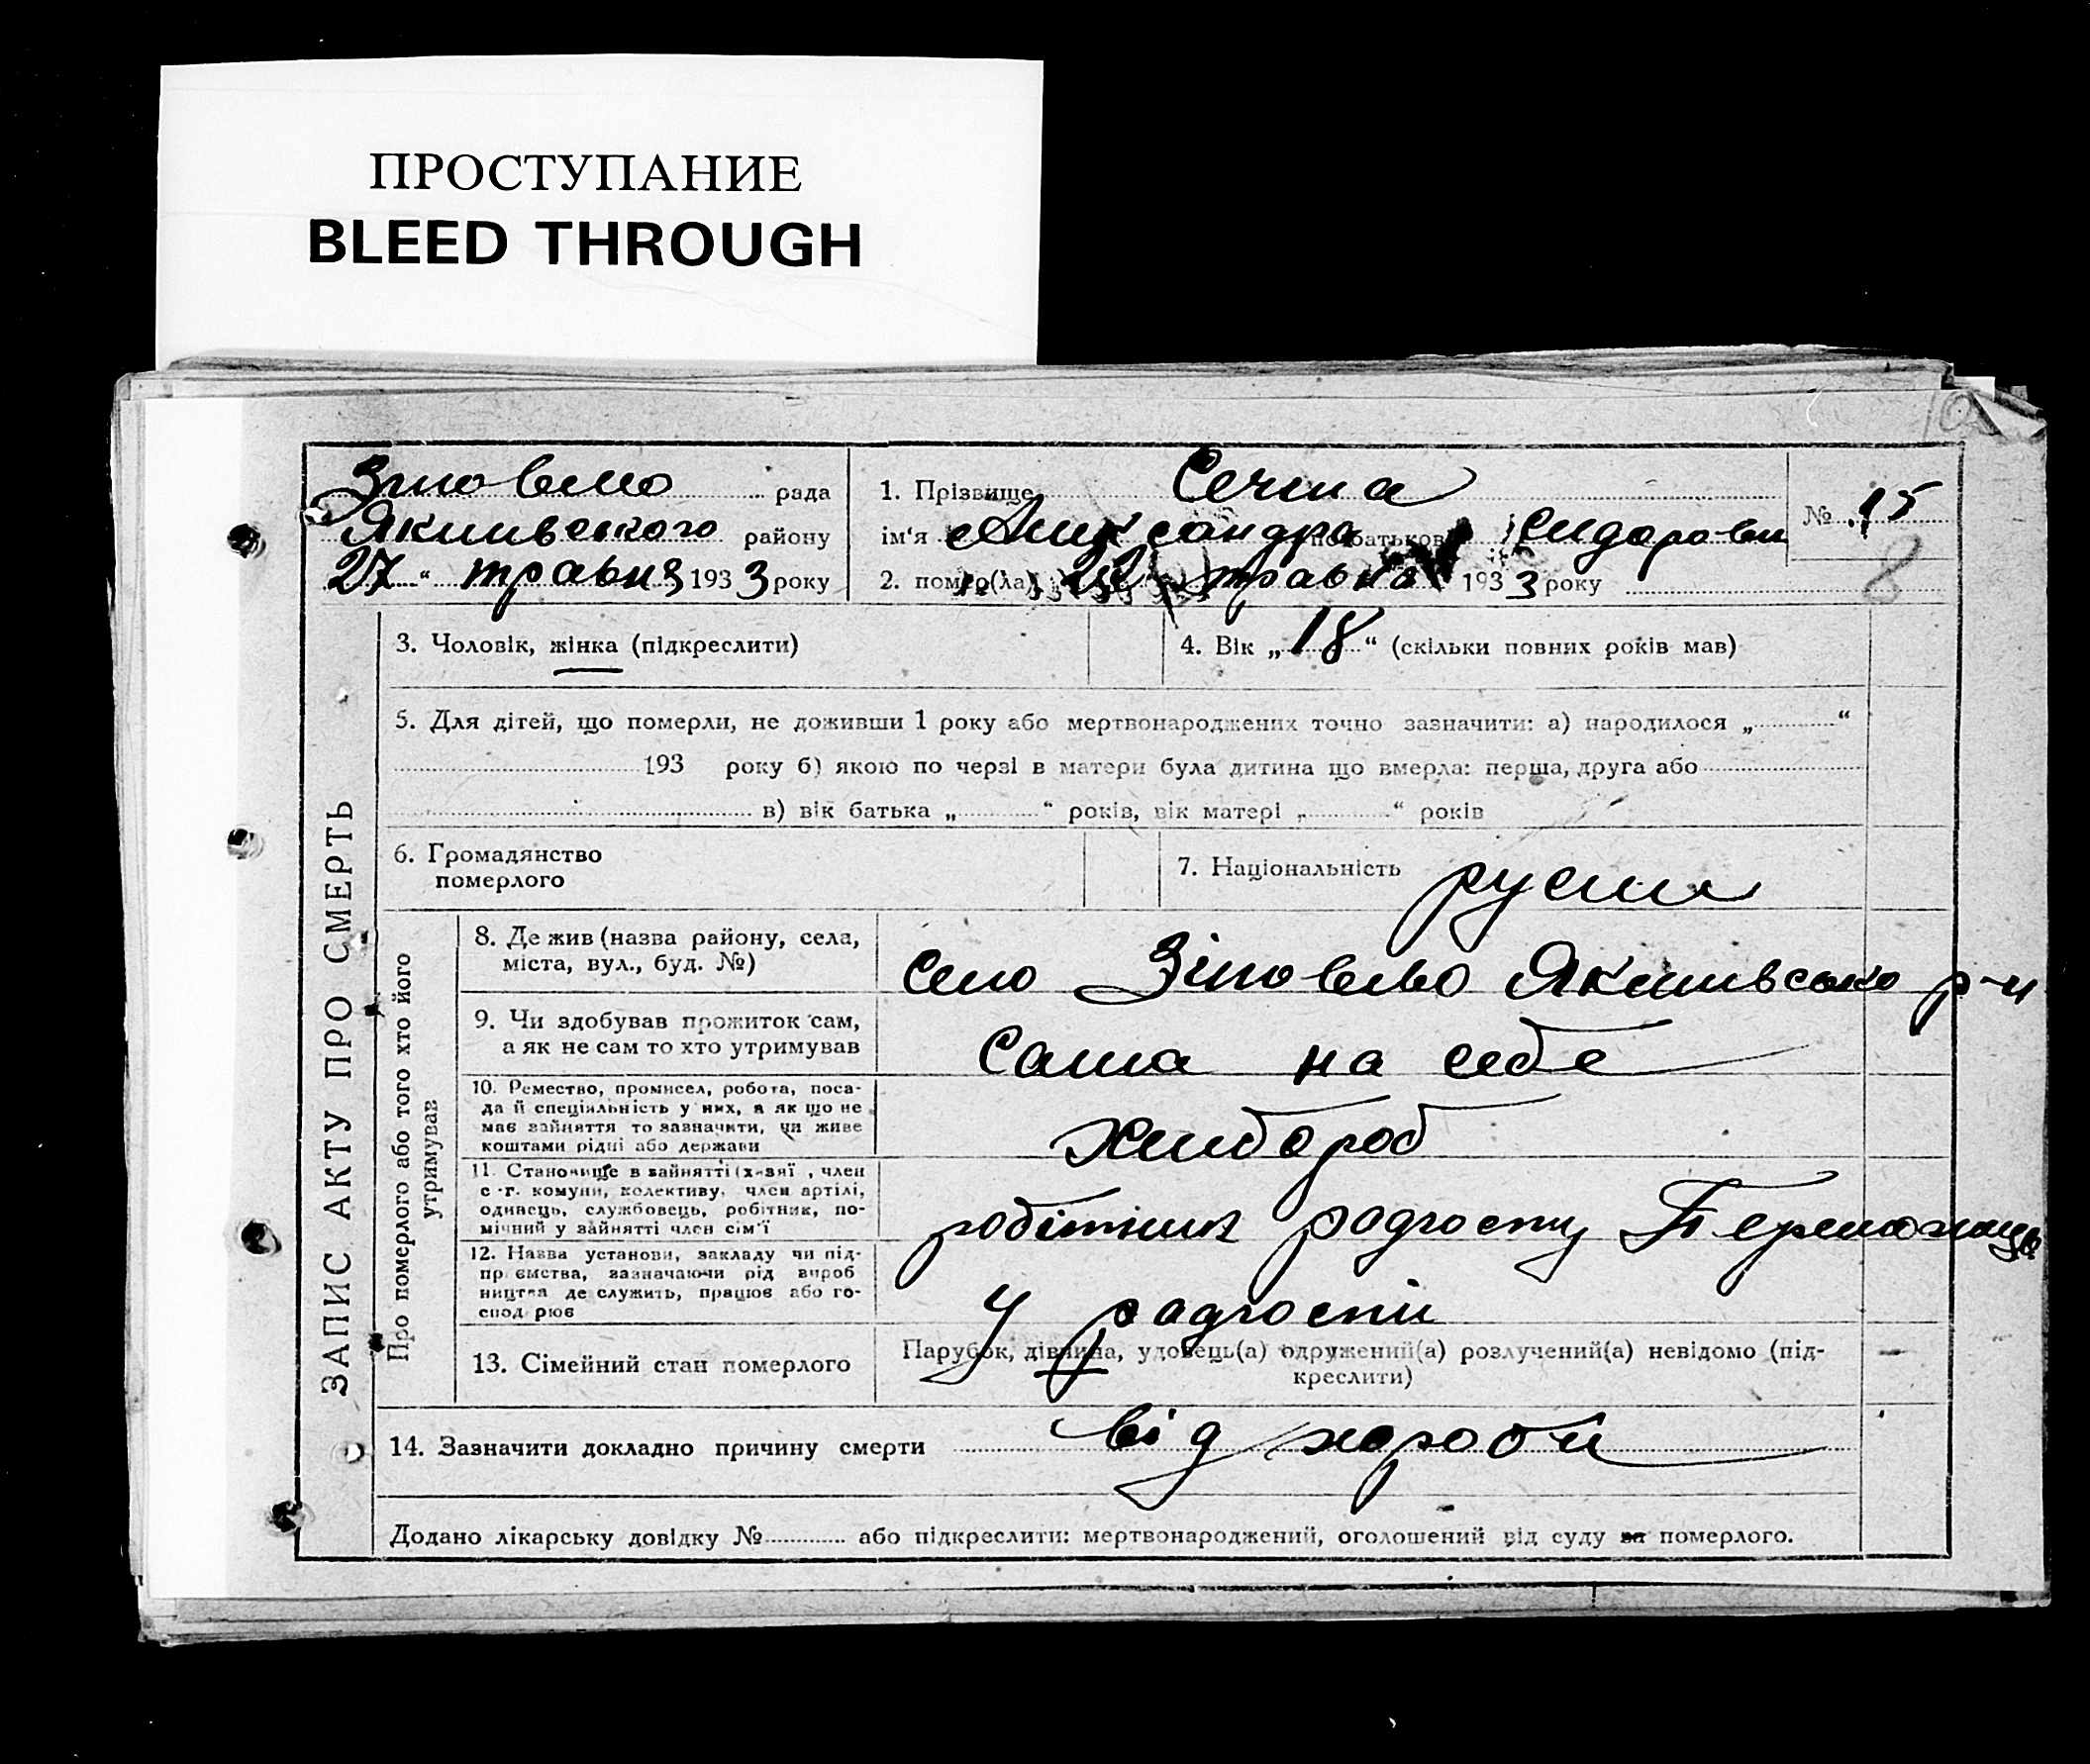 ПРОСТУПАНИЕ
BLEED THROUGH
рада
Якимівського району
27 " травня 1933 року
1. Прізвище
ім'я Александра по батькові Сидоровн
2. помер(ла) травня 1933 року
№ 15
8
3. Чоловік, жінка (підкреслити)
4. Вік „ 18 “ (скільки повних років мав)
5. Для дітей, що померли, не доживши 1 року або мертвонароджених точно зазначити: а) народилося „ “
193 року б) якою по черзі в матери була дитина що вмерла: перша, друга або
в) вік батька „ “ років, вік матері „ “ років
6. Громадянство
померлого
7. Національність
ЗАПИС АКТУ ПРО СМЕРТЬ
Про померлого або того хто його
утримував
8. Де жив (назва району, села,
міста, вул., буд. №)
село Якимівсько р-н
9. Чи здобував прожиток сам,
а як не сам то хто утримував
Сама на себе
10. Ремество, промисел, робота, поса-
да й спеціяльність у них, а як що не
має зайняття то зазначити, чи живе
коштами рідні або держави
Хлібороб
11. Становище в зайнятті (х-вяї , член
с-г. комуни, колективу, член артілі,
одинець, службовець, робітник, по-
мічний у зайнятті член сім'ї
робітник радгоспу
12. Назва установи, закладу чи під-
пр ємства, зазначаючи рід вироб
ництва де служить, працює або го-
спод рює
У радгоспі
13. Сімейний стан померлого
Парубок, дівчина, удовець(а) одружений(а) розлучений(а) невідомо (під-
креслити)
14. Зазначити докладно причину смерти від хороби
Додано лікарську довідку № або підкреслити: мертвонароджений, оголошений від суду за померлого.